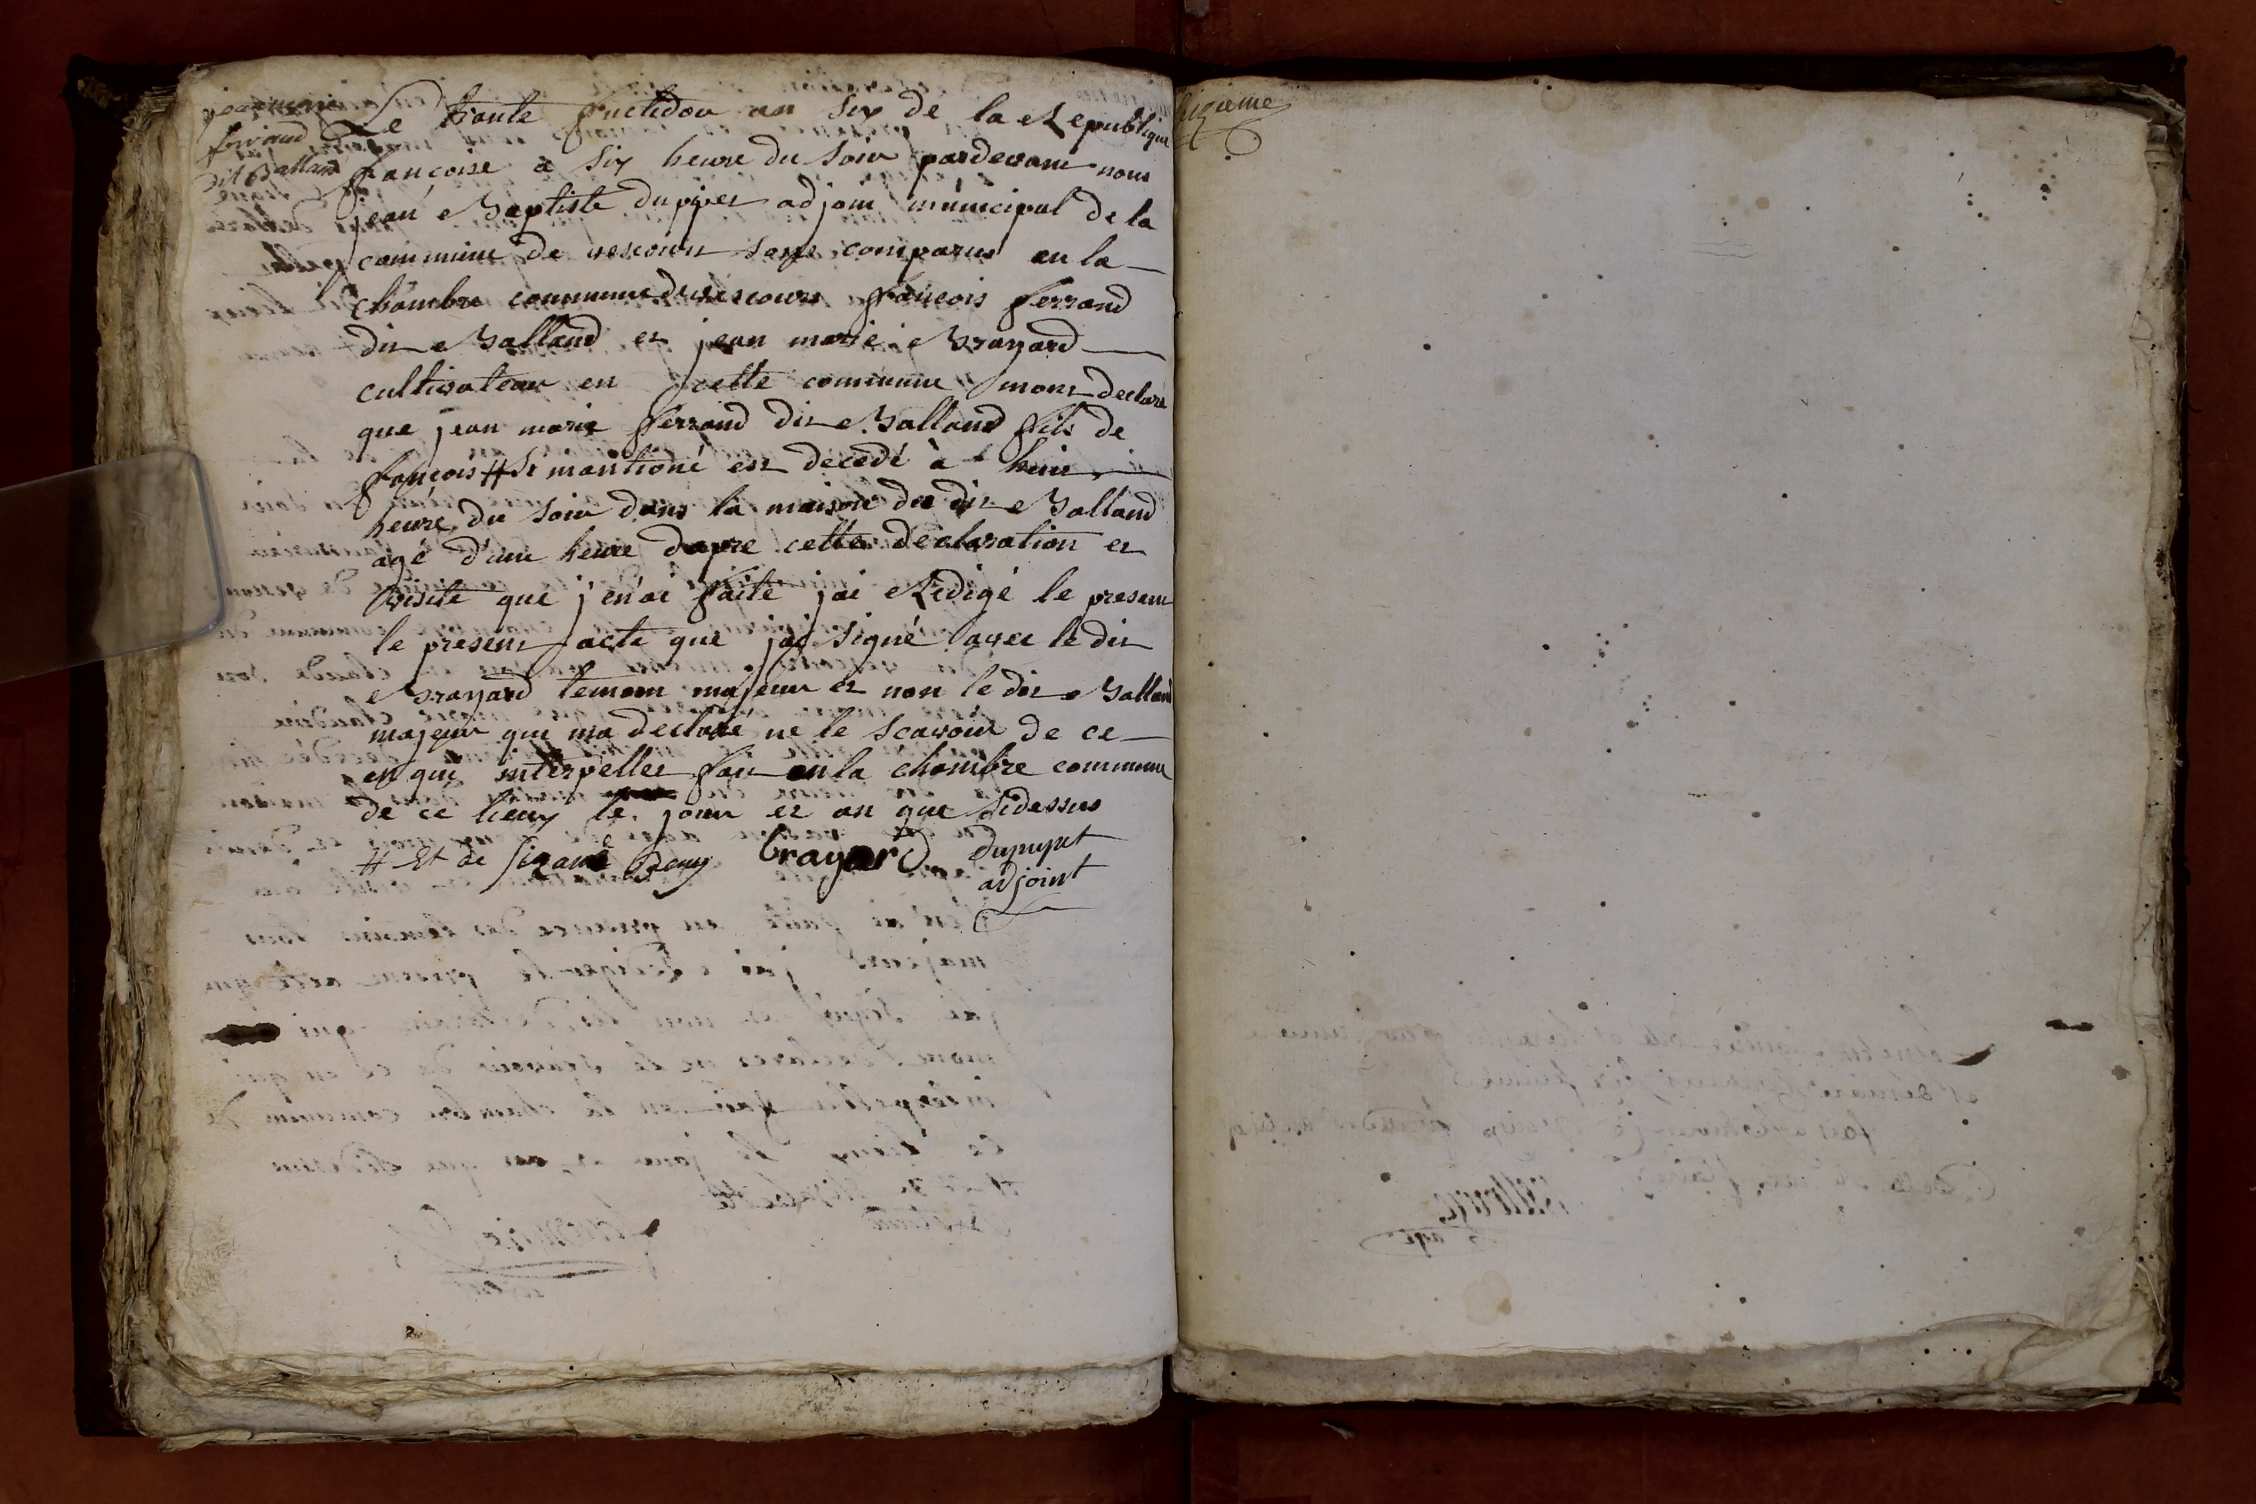 jean marie
ferrand
dit Balland
Le trante fructidor an six de la Republique
françoise à six heure du soir pardevant nous
jean Baptiste dupuyet adjoin municipal de la
commune de vescour sons comparus en la
chambre commune de vescours françois ferrand
dit Balland et jean marie Brayard
cultivateur en cette commune mont declaré
que jean marie ferrand dit Balland fils de
françois # si mantioné est decedé à huit
heure du soir dans la maison du dit Balland
agé d'une heure dapre cette declaration et
visite que j'en ai faite jai Redigé le present
le present acte que jai signé avec le dit
Brayard temoin majeur et non le dit Balland
majeur qui ma declaré ne le scavoir de ce
enqui interpellez fait en la chambre commune
de ce lieux le jour et an que sidessus
# Et de
brayard
dupuyet
adjoint